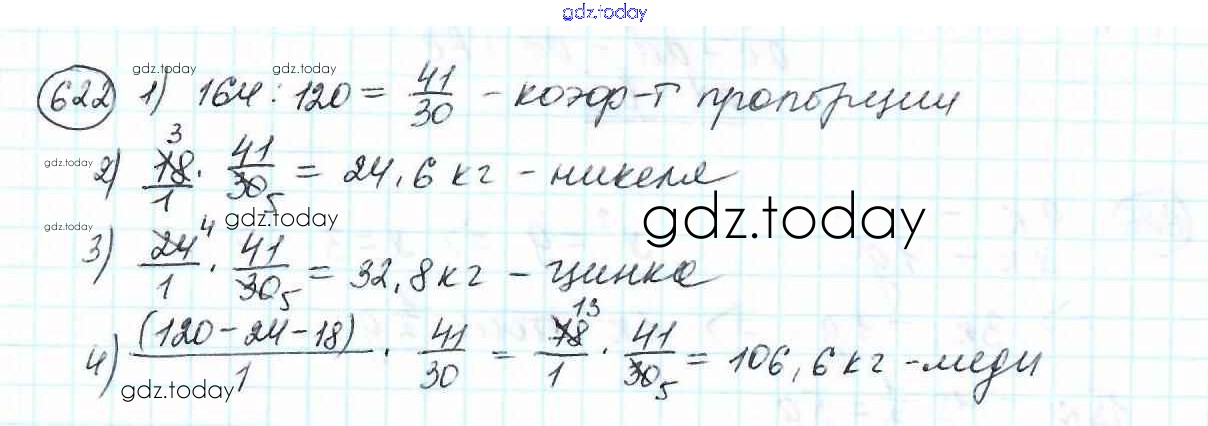 gdz.today
gdz.today gdz.today
622 1) 164 : 120 = 41/30 - коэф-т пропорции
gdz.today 2) 18/1 3 · 41/30 5 = 24,6 кг - никеля
gdz.today
gdz.today
gdz.today 3) 24/1 4 · 41/30 5 = 32,8 кг - цинка
4) (120 - 24 - 18)/1 · 41/30 = 78/1 13 · 41/30 5 = 106,6 кг - меди
gdz.today